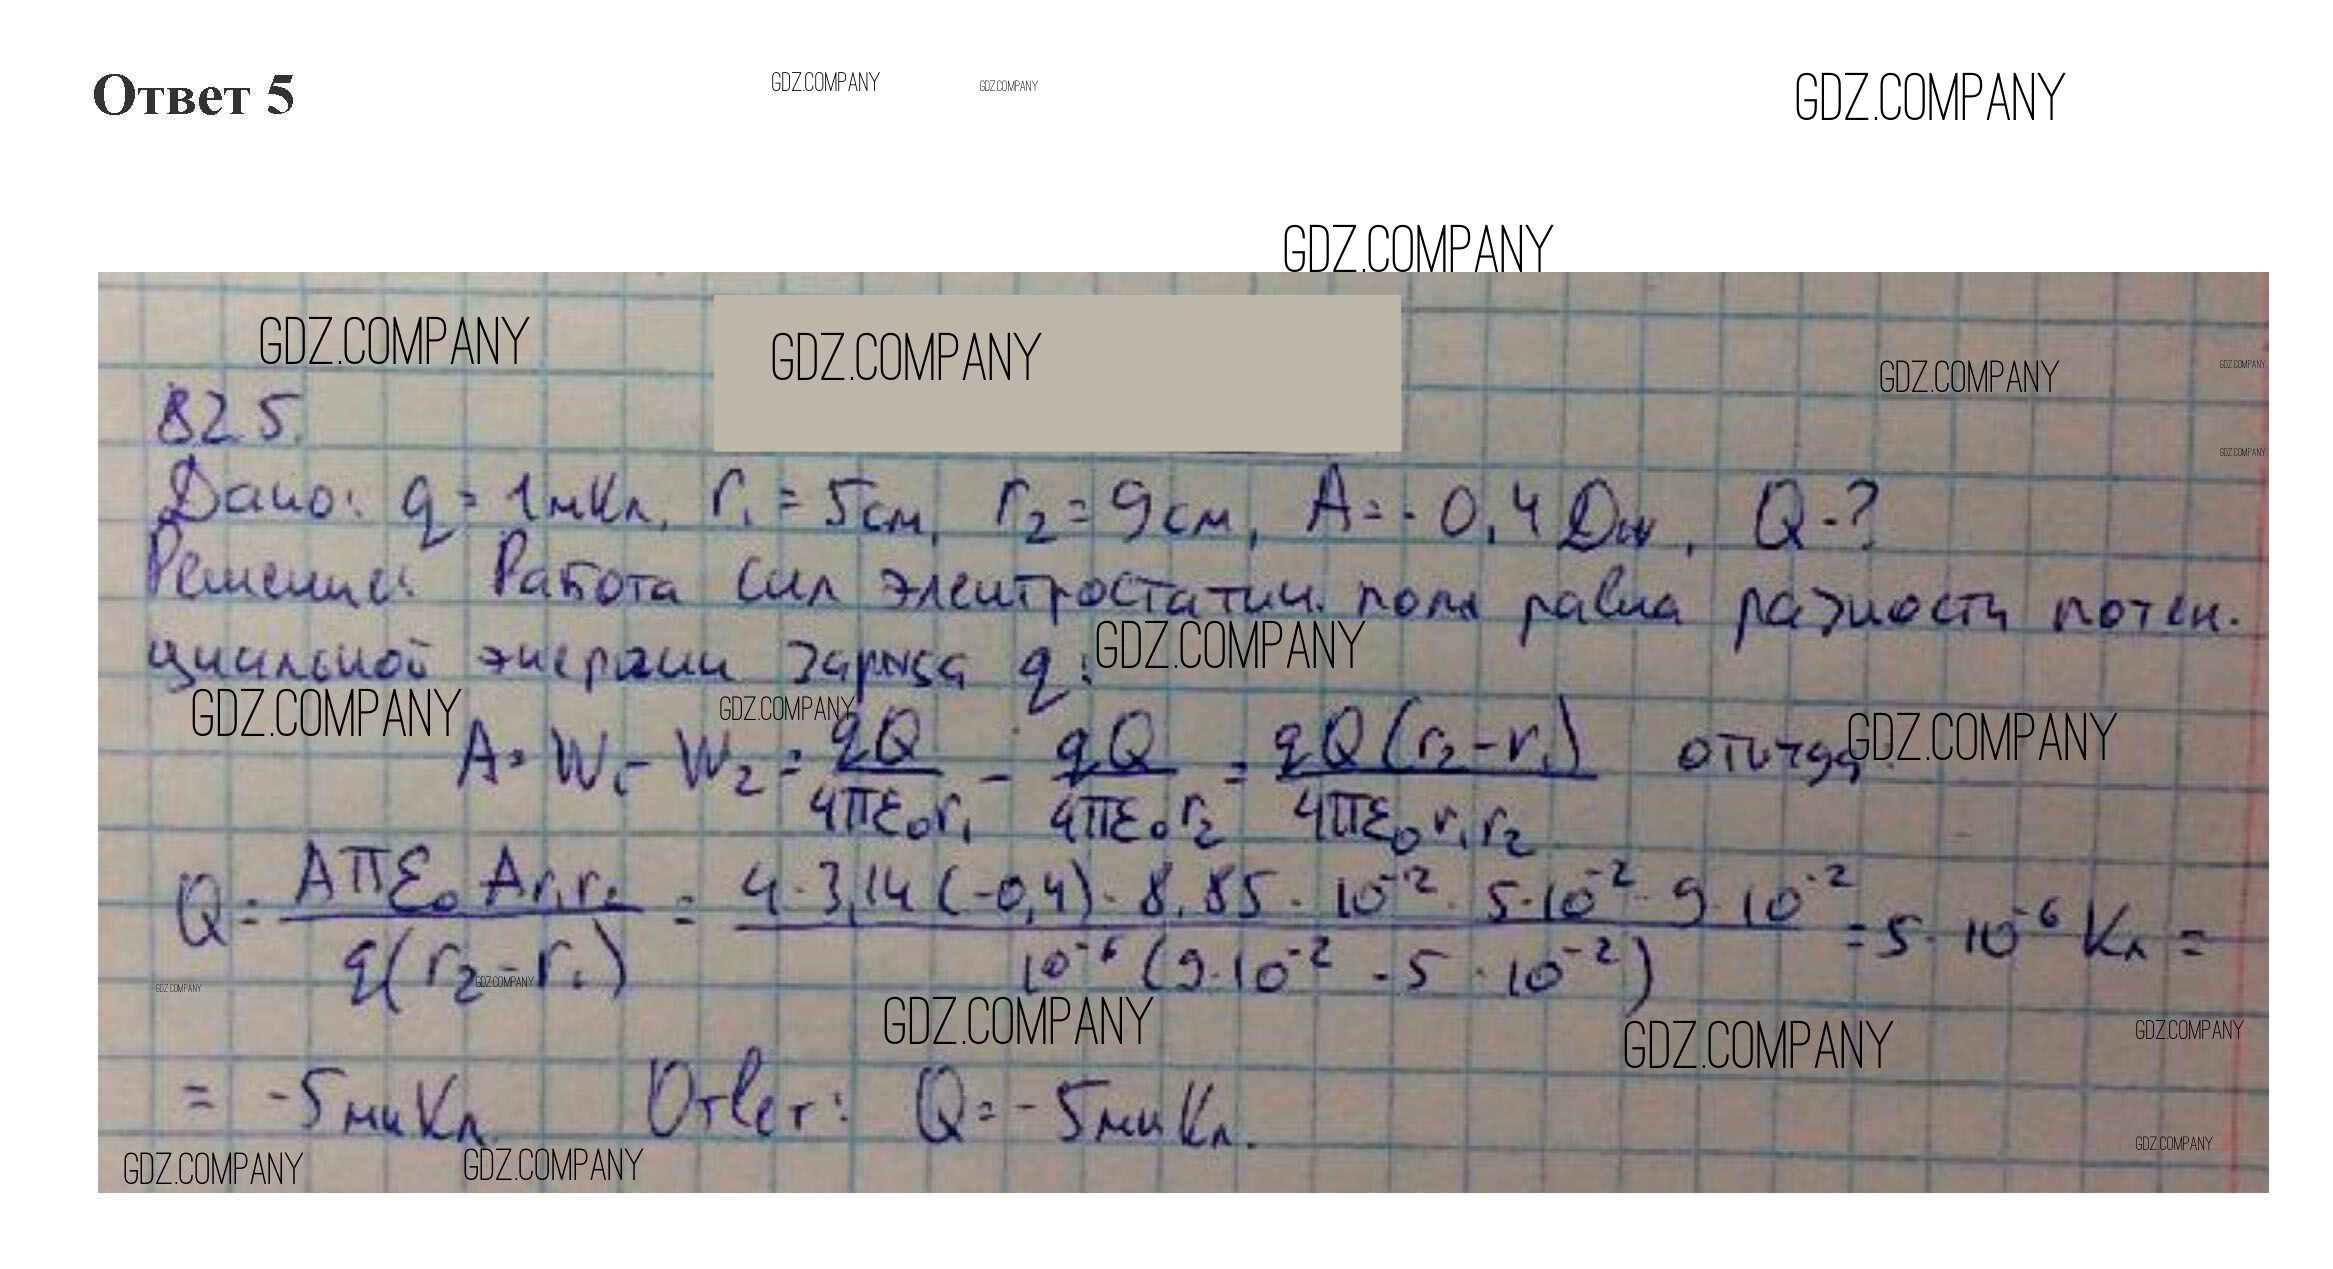 Ответ 5
GDZ.COMPANY
GDZ.COMPANY
GDZ.COMPANY
GDZ.COMPANY
GDZ.COMPANY
GDZ.COMPANY
GDZ.COMPANY
GDZ.COMPANY
В2.5.
GDZ.COMPANY
Дано: q = 1мкКл, r₁ = 5см, r₂ = 9см, A = -0,4 Дж, Q-?
Решение: Работа сил электростатич. поля равна разности потен.
циальной энергии заряда q:
GDZ.COMPANY
GDZ.COMPANY
GDZ.COMPANY
GDZ.COMPANY
A = W₁ - W₂ = qQ/4πε₀r₁ - qQ/4πε₀r₂ = qQ(r₂-r₁)/4πε₀r₁r₂ откуда:
Q = Aπε₀Ar₁r₂/q(r₂-r₁) = 4·3,14(-0,4)·8,85·10⁻¹²·5·10⁻²·9·10⁻²/10⁻⁶(9·10⁻²-5·10⁻²) = 5·10⁻⁶Кл =
GDZ.COMPANY
GDZ.COMPANY
GDZ.COMPANY
GDZ.COMPANY
GDZ.COMPANY
= -5мкКл Ответ: Q = -5мкКл.
GDZ.COMPANY
GDZ.COMPANY
GDZ.COMPANY